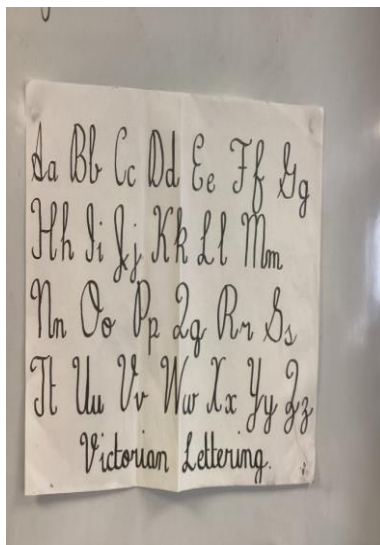 Aa Bb Cc Dd Ee Ff Gg
Hh Ii Jj Kk Ll Mm
Nn Oo Pp Qq Rr Ss
Tt Uu Vv Ww Xx Yy Zz
Victorian Lettering.